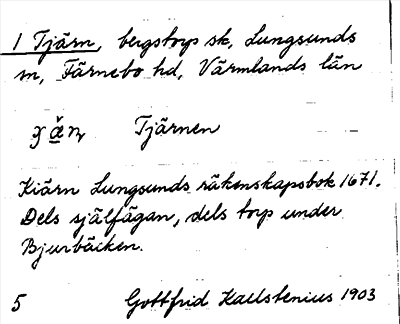 1 Tjärn, bergstorp sk, Lungsunds
sn, Färnebo hd, Värmlands län
Tjärnen
Kiärn Lungsunds räkenskapsbok 1671.
Dels själfägan, dels torp under
Bjurbäcken.
5 Gottfrid Kallstenius 1903